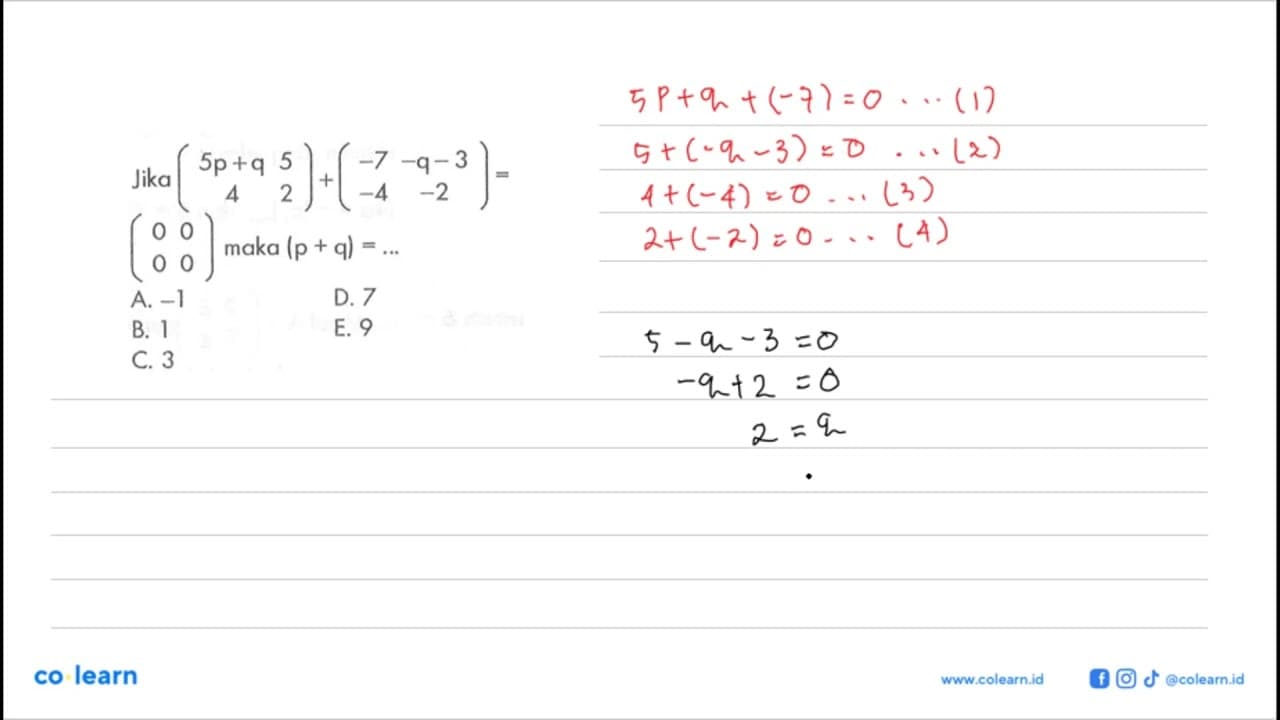 Jika ( 5p+q 5 ) + ( -7 -q-3 ) =
( 4 2 ) ( -4 -2 )
( 0 0 ) maka (p + q) = ...
( 0 0 )
A. -1 D. 7
B. 1 E. 9
C. 3
5p+q+(-7)=0 ... (1)
5+(-q-3)=0 ... (2)
4+(-4)=0 ... (3)
2+(-2)=0 ... (4)
5-q-3=0
-q+2=0
2=q
co learn
www.colearn.id @colearn.id